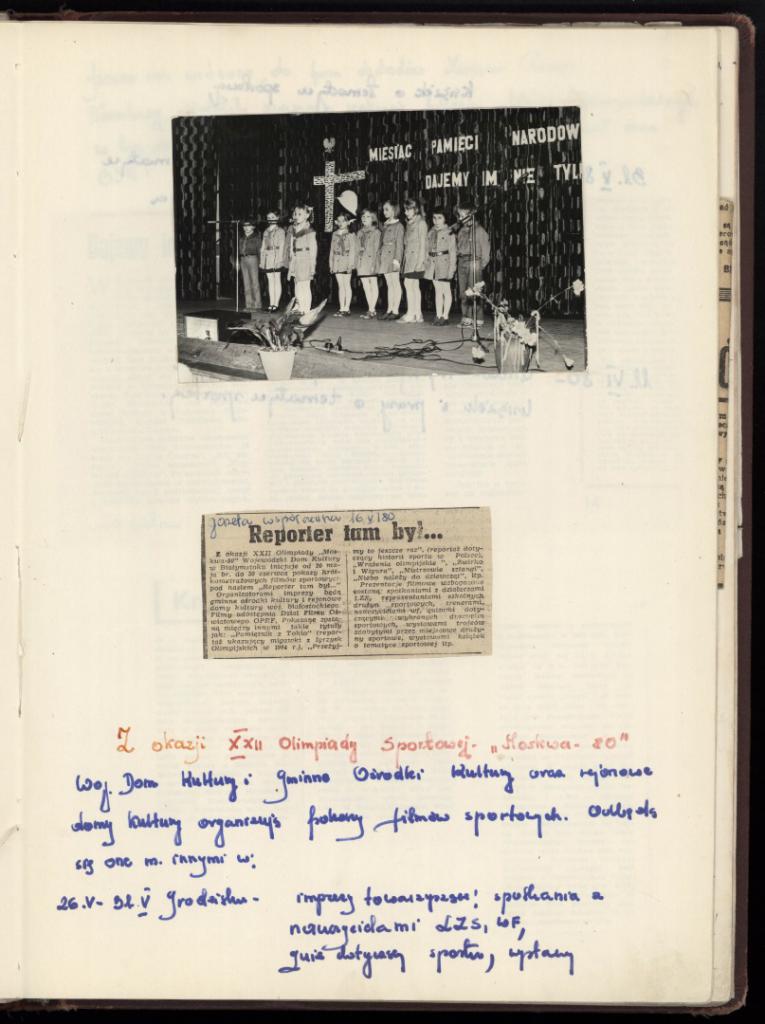 MIESIĄC PAMIĘCI NARODOW
DAJEMY IM NIE TYL
gazeta współczesna 16 V 80
Reporter tam był...
Z okazji XXII Olimpiady „Mos-
kwa-80" Wojewódzki Dom Kultury
w Białymstoku inicjuje od 20 ma-
ja br. do 30 czerwca pokazy krót-
kometrażowych filmów sportowych
pod hasłem „Reporter tam był...".
Organizatorami imprezy będą
gminne ośrodki kultury i rejonowe
domy kultury woj. białostockiego.
Filmy udostępnia Dział Filmu Oś-
wiatowego OPRF. Pokazane zosta-
ną między innymi takie tytuły
jak: „Pamiętnik z Tokio" (repor-
taż ukazujący migawki z Igrzysk
Olimpijskich w 1964 r.), „Przeżyj-
my to jeszcze raz", (reportaż doty-
czący historii sportu w Polsce),
„Wrażenia olimpijskie", „Żwirko
i Wigura", „Mistrzowie sztangi",
„Niebo należy do dziewcząt", itp.
Prezentacje filmowe wzbogacone
zostaną: spotkaniami z działaczami
LZS, reprezentantami szkolnych
drużyn sportowych, trenerami,
nauczycielami wf, quizami dotyc-
zącymi wybranych dyscyplin
sportowych, wystawami trofeów
zdobytymi przez miejscowe druży-
ny sportowe, wystawami książek
o tematyce sportowej itp.
Z okazji XXII Olimpiady Sportowej - „Moskwa - 80"
Woj. Dom Kultury i Gminne Ośrodki Kultury oraz rejonowe
domy kultury organizują pokazy filmów sportowych. Odbędą
się one m. innymi w:
26.V - 31.V Grodzisku - imprezy towarzyszące: spotkania z
nauczycielami LZS, WF,
quiz dotyczący sportu, wystawy